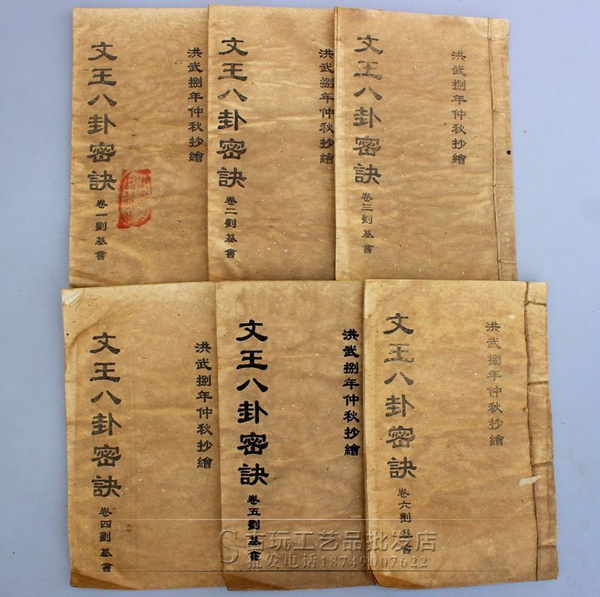 洪武捌年仲秋抄繪
文王八卦密訣
卷一劉基書
洪武捌年仲秋抄繪
文王八卦密訣
卷二劉基書
洪武捌年仲秋抄繪
文王八卦密訣
卷三劉基書
洪武捌年仲秋抄繪
文王八卦密訣
卷四劉基書
洪武捌年仲秋抄繪
文王八卦密訣
卷五劉基書
洪武捌年仲秋抄繪
文王八卦密訣
卷六劉基書
玩工艺品批发店
批发电话18749007622